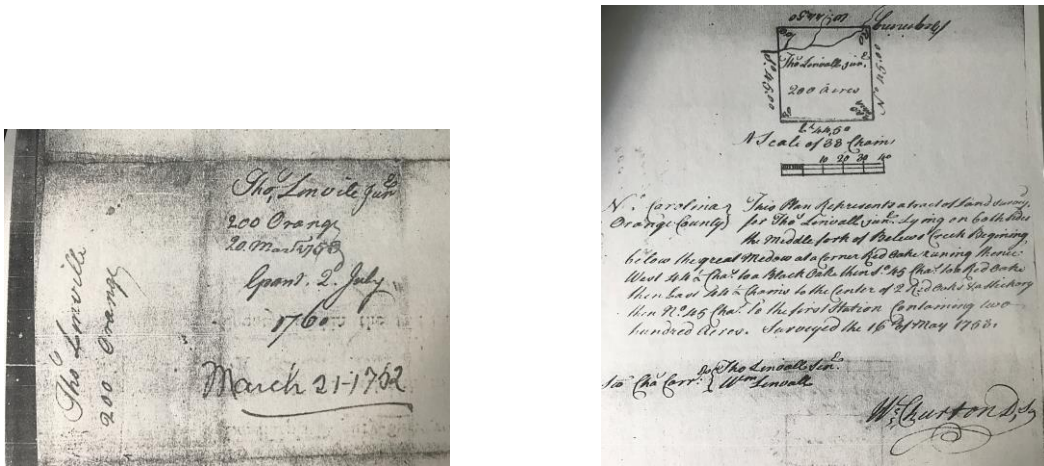 Thos Linville
200 Orange
Tho, Linvile Junr
200 Orange
20. Mar 1753
Grant 2d. July
1760.
March 21-1752
Wt. 44,50
Beginning
So. 45,00
No. 45,00
Tho Linvall junr.
200 Acres
Et. 44,50
A Scale of 38 Chains
10 20 30 40
No. Carolina This Plan Represents a tract of Land survey.
Orange County for Tho. Linvall junr. Lying on both sides
the Middle fork of Belews Creek Begining
below the great Medow at a Corner Red Oake runing thence
West 44½ Cha. to a Black Oake then So. 45 Cha. to a Red Oake
then East 44½ Chains to the Center of 2 Red Oaks & a Hickory
then No. 45 Cha. to the first Station Containing two
hundred Acres. Surveyed the 16th of May 1753.
Swo Cha Carrs. Tho Linvall Senr.
Wm Linvall
W. Churton D. S.